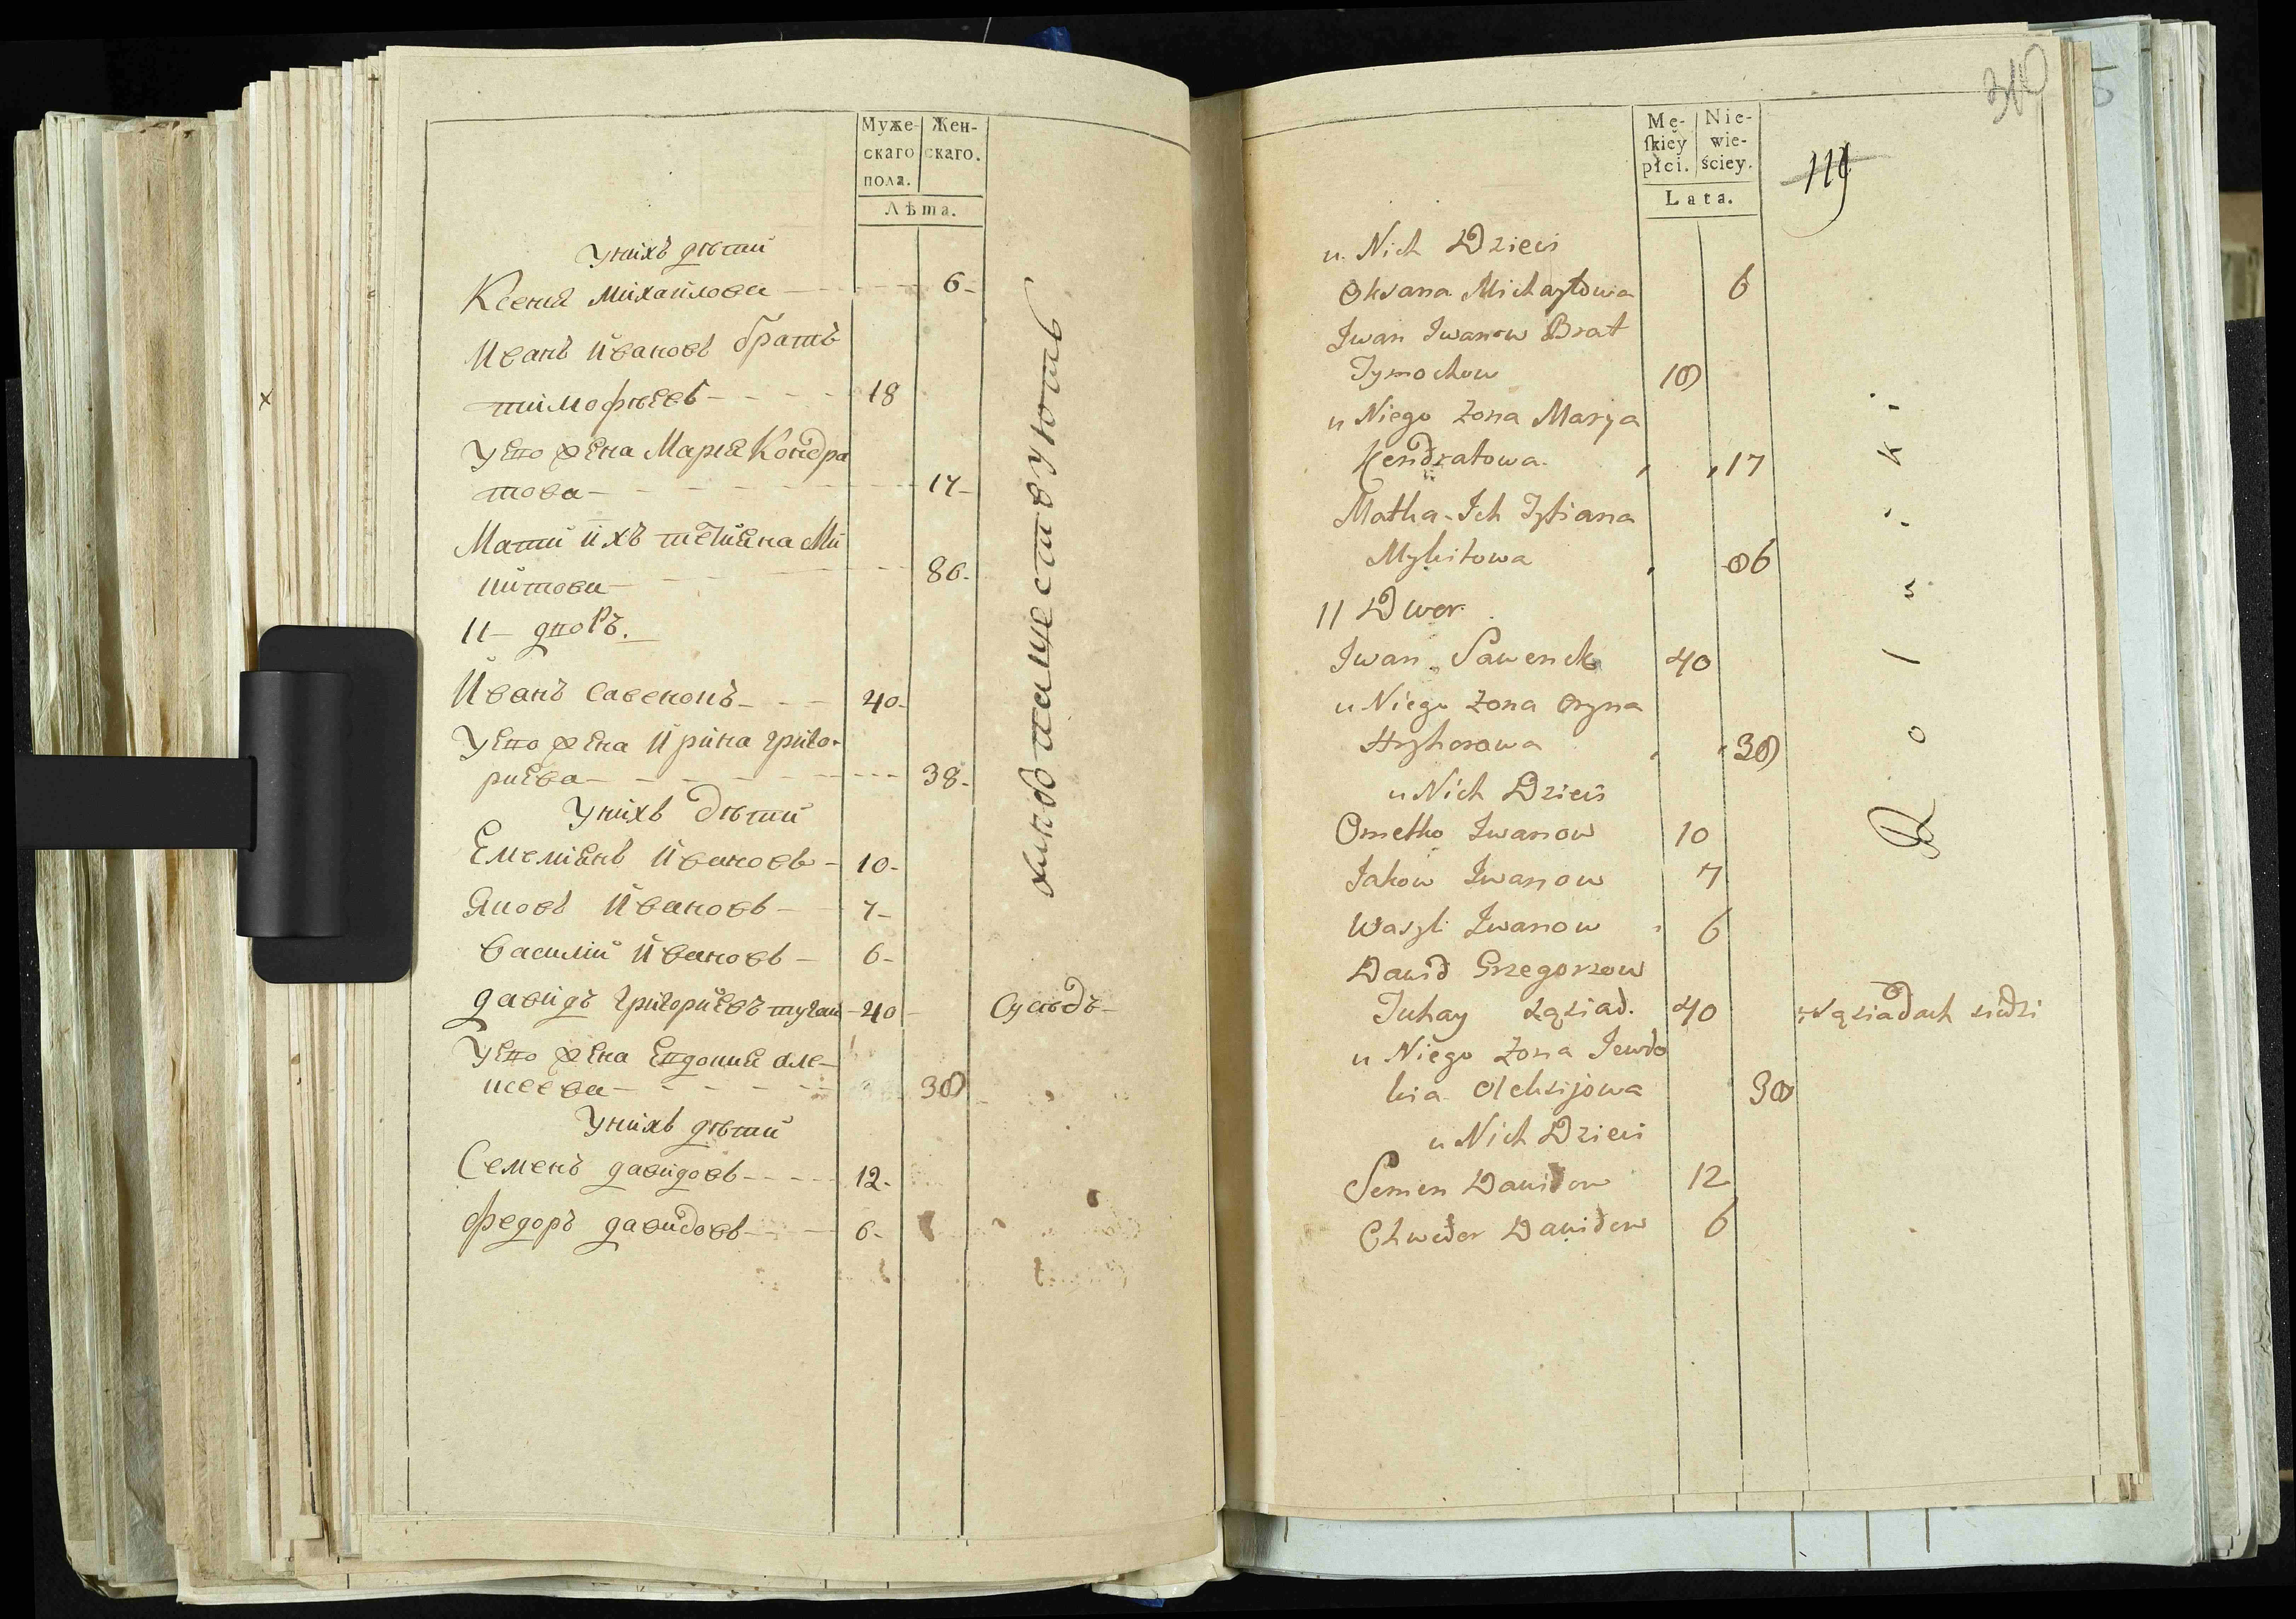 Муже-
скаго
пола.
Жен-
скаго.
Лѣта.
У нихъ дѣти
Ксения Михаилова 6
Иванъ Ивановъ братъ
тимофѣевъ 18
У его жена Мария Кондра
това 17
Мати ихъ тетияна Ми
китова 86
11 дворъ.
Иванъ Савенокъ 40
У его жена Ирина григо-
риева 38
У нихъ дѣти
Емелиянъ Ивановъ 10
Яковъ Ивановъ 7
Василий Ивановъ 6
давидъ григориевъ тугай 40 Сусѣдъ
У его жена Евдокия але-
ксеева 38
У нихъ дѣти
Семенъ давидовъ 12
Федоръ давидовъ 6
хлѣбопашествують
310
119
Mę-
ſkiey
płci.
Nie-
wie-
ściey.
Lata.
u Nich Dzieci
Oksana Michayłowa 6
Jwan Jwanow Brat
Tymochow 18
u Niego Zona Marya
Kendratowa 17
Matka Ich Tytiana
Mykitowa 86
11 Dwor
Jwan Sawenok 40
u Niego Zona Oryna
Hryhorowa 38
u Nich Dzieci
Omelko Jwanow 10
Jakow Jwanow 7
Wasyli Jwanow 6
Dawid Grzegorzow
Tuhay sąsiad. 40 w sąsiadach siedzi
u Niego Zona Jewdo
kia Oleksijowa 38
u Nich Dzieci
Semen Dawidow 12
Chwedor Dawidow 6
Rolniki